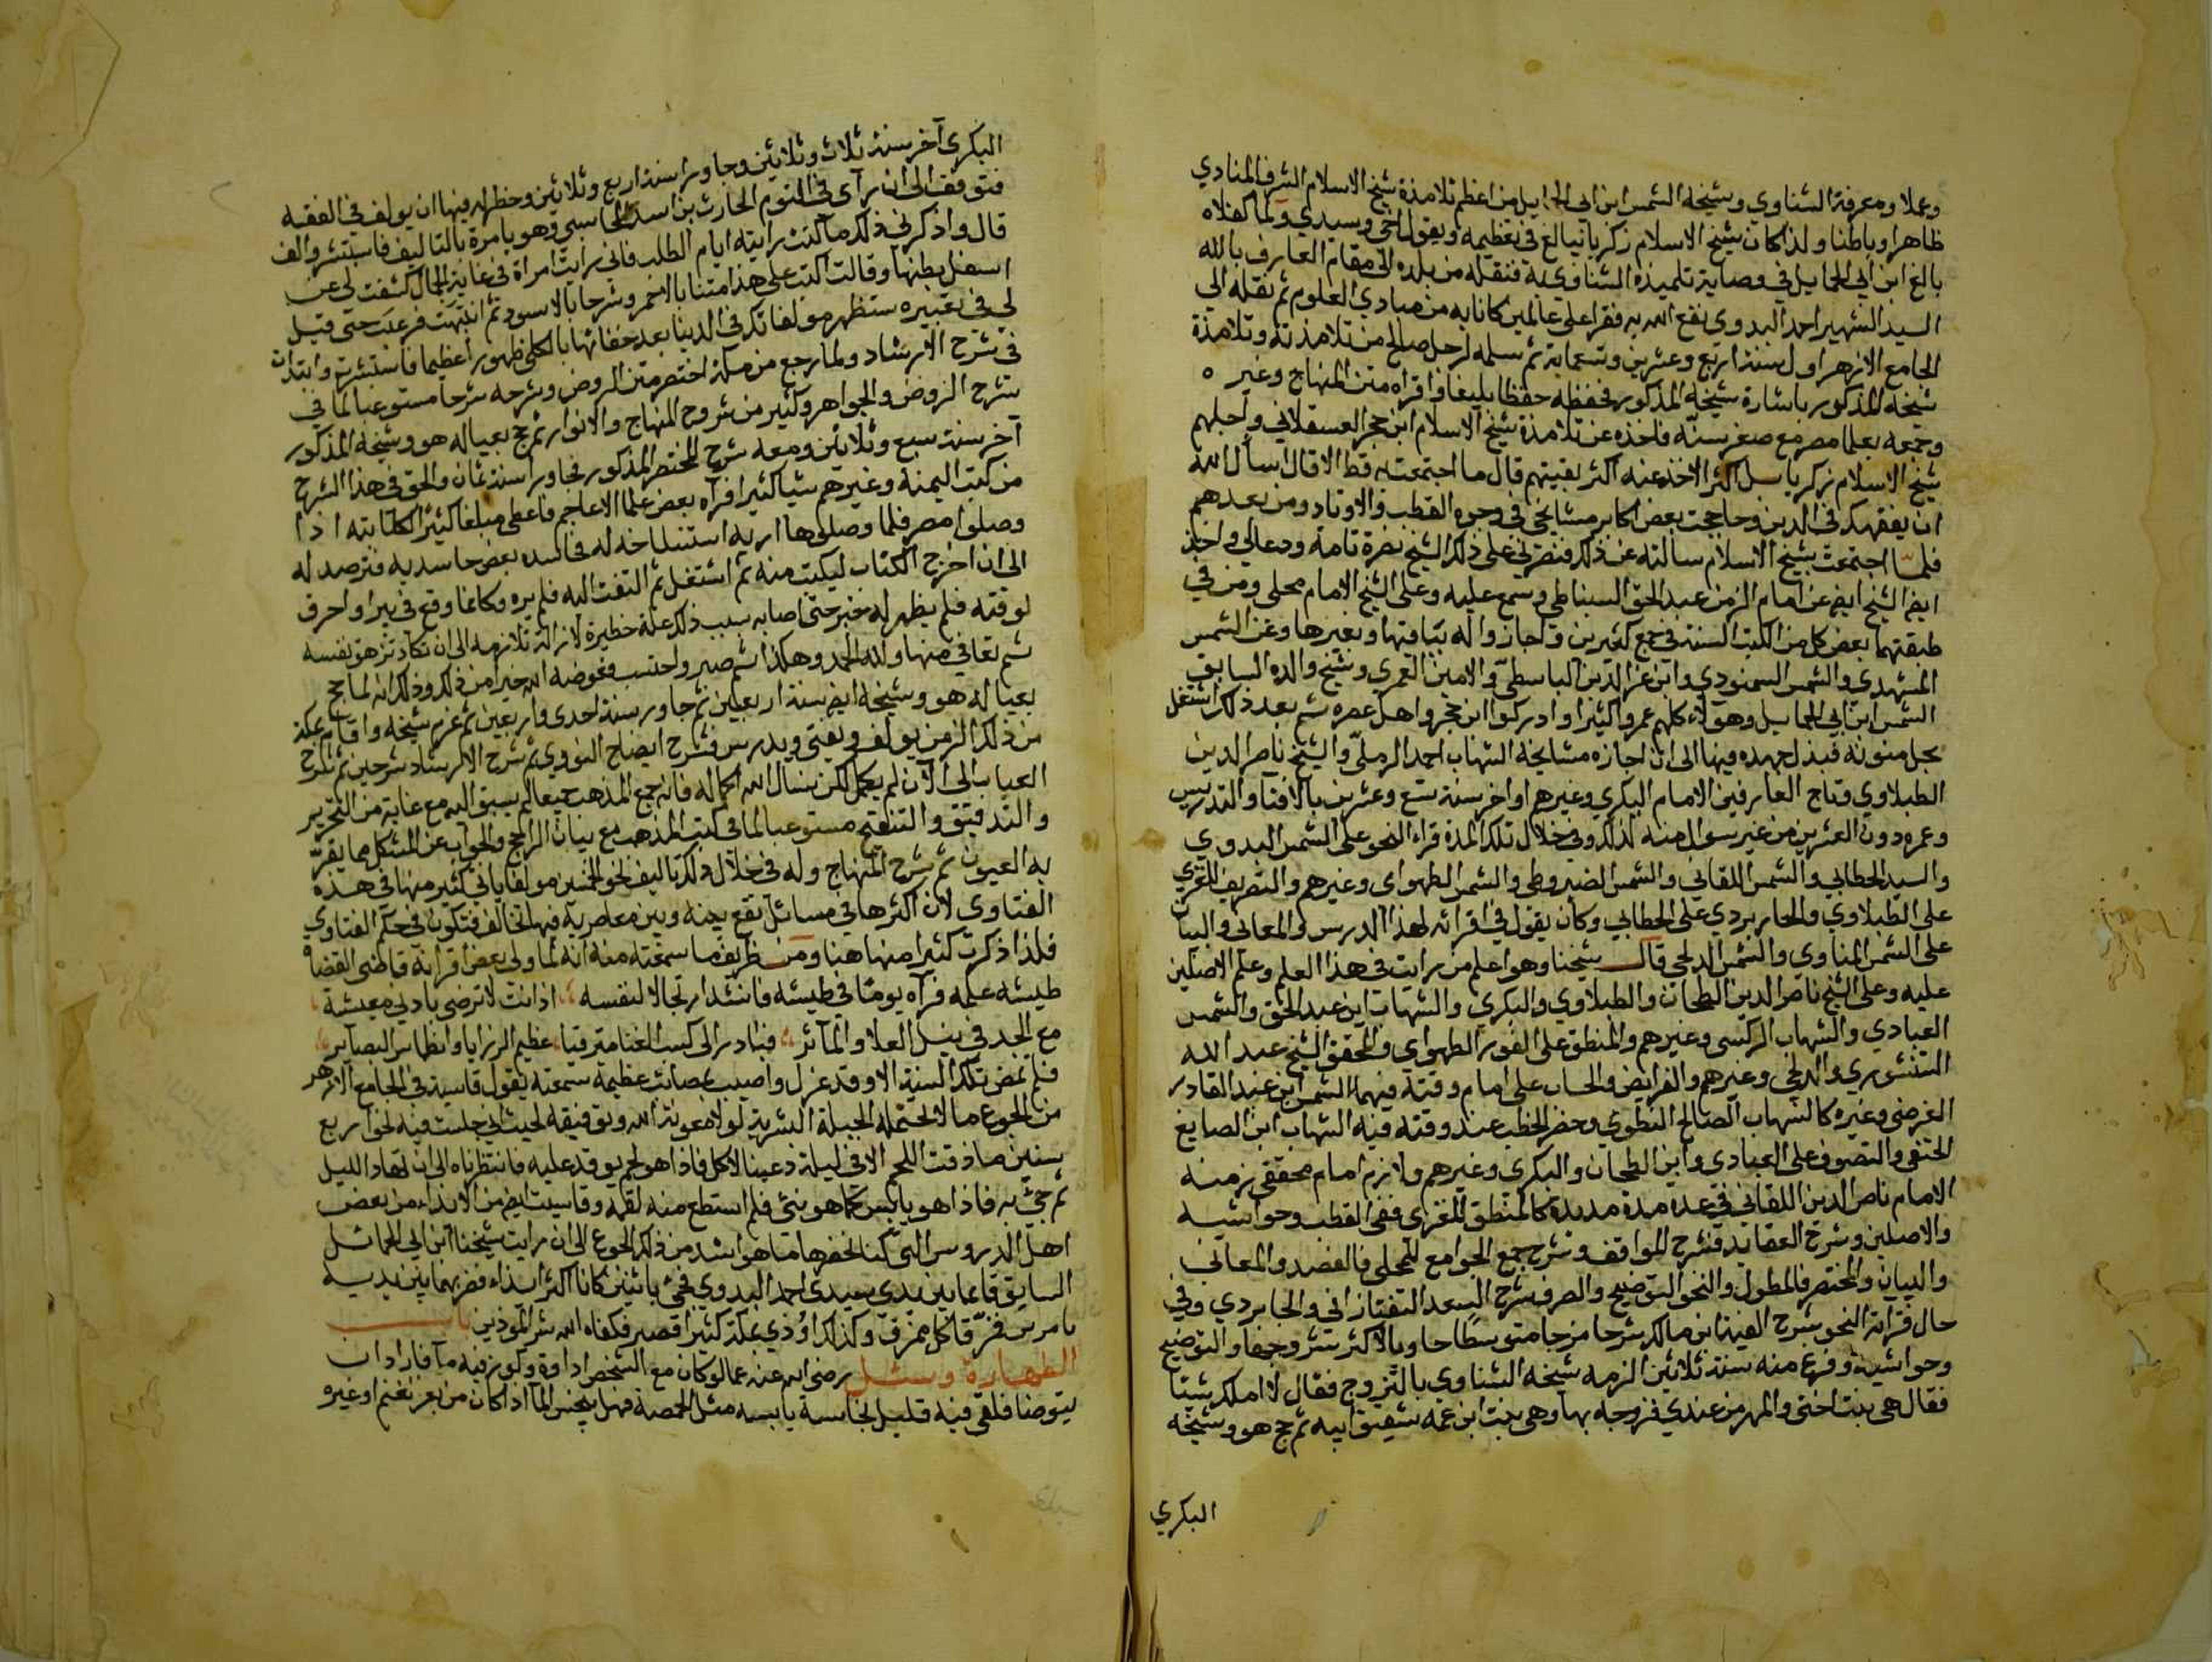 وعملا ومعرفة الشناوي وشيخه الشمس ابن ابي الحمايل من اعظم تلامذة شيخ الاسلام الشرف المناوي
ظاهرا وباطنا ولذا كان شيخ الاسلام زكريا يبالغ في تعظيمه ويقول اخي وسيدي ولما كفلاه
بالغ ابن ابي الحمايل في وصاية تلميذه الشناوي به فنقله من بلده الى مقام العارف بالله
السيد الشهير احمد البدوي نفع الله به فقرا على عالمين كانا به من مبادي العلوم ثم نقله الى
الجامع الازهر اول سنة اربع وعشرين وتسعماية ثم سلمه لرجل صالح من تلامذته وتلامذة
شيخه المذكور باشارة شيخه المذكور فحفظه حفظا بليغا واقراه متن المنهاج وغيره
وجمعه بعلما مصر مع صغر سنه فاخذ عن تلامذة شيخ الاسلام ابن حجر العسقلاني واجلهم
شيخ الاسلام زكريا بل اكثر الاخذ عنه اكثر بقيتهم قال ما اجتمعت به قط الا قال اسأل الله
ان يفقهك في الدين وحاججت بعض اكابر مشايخي في وجود القطب والاوتاد ومن بعدهم
فلما اجتمعت بشيخ الاسلام سالته عن ذلك فنصرني على ذلك الشيخ نصرة تامة ودعالي واخذ
ايض الشيخ ايض عن امام الزمن عبد الحق السنباطي وسمع عليه وعلى الشيخ الامام محلي ومن في
طبقتهما بعض كل من الكتب الستة في جمع كثيرين واجازوا له بباقيها وبغيرها وعن الشمس
المشهدي والشمس السمنودي وابن عز الدين الباسطي والامين الغمري وشيخ والده السابق
الشمس ابن ابي الحمايل وهولاء كلهم عمروا كثيرا وادركوا ابن حجر واهل عصره ثم بعد ذلك اشتغل
بحل متونه فبذل جهده فيها الى ان اجازه مشايخه الشهاب احمد الرملي والشيخ ناصر الدين
الطبلاوي وتاج العارفين الامام البكري وغيرهم اواخر سنة تسع وعشرين بالافتا والتدريس
وعمره دون العشرين من غير سوال منه لذلك وفي خلال تلك المدة قراء النحو على الشمس البدوي
والسيد الحطابي والشمس اللقاني والشمس الضيروطي والشمس الطهواي وغيرهم والتصريف للغزي
على الطبلاوي والجاربردي على الحطابي وكان يقول في اقرائه لهذا الدرس والمعاني والبيان
على الشمس المناوي والشمس الدلجي قال شيخنا وهو اعلم من رايت في هذا العلم وعلم الاصلين
عليه وعلى الشيخ ناصر الدين الطحان والطبلاوي والبكري والشهاب ابن عبد الحق والشمس
العبادي والشهاب البركسي وغيرهم والمنطق على الفور الطهواي والمحقق الشيخ عبد الله
الشنشوري والدلجي وغيرهم والفرايض والحساب على امام وقته فيهما الشمس ابن عبد القادر
الفرضي وغيره كالشهاب الصالح البطوي وحضر الخطب عند وقته فيه الشهاب ابن الصايغ
الحنفي والتصوف على العبادي وابن الطحان والبكري وغيرهم ولازم امام محققي زمنه
الامام ناصر الدين اللقاني في عدة مدة مديدة كالمنطق للغزي ففي القطب وحواشيه
والاصلين وشرح العقايد فشرح المواقف وشرح جمع الجوامع للمحلي فالعضد والمعاني
والبيان والمختصر فالمطول والنحو التوضيح والصرف شرح السعد التفتازاني والجاربردي وفي
حال قراته النحو شرح الفية ابن مالك شرحا مزجا متوسطا حاويا لاكثر شروحها والتوضيح
وحواشيه وفرغ منه سنة ثلاثين الزمه شيخه الشناوي بالتزوج فقال لا املك شيئا
فقال هي بنت اختي والمهر من عندي فزوجه بها وهي بنت ابن عمه شقيق ابيه ثم حج هو وشيخه
البكري
البكري آخر سنة ثلاث وثلاثين وجاورا سنة اربع وثلاثين وخطر له فيها ان يولف في الفقه
فتوقف الى ان رآى في النوم الحارث بن اسد المحاسبي وهو يامره بالتاليف فاستبشر والف
قال واذكرني ذلك ما كنت رايته ايام الطلب فاني رايت امراة في غاية الجمال كشفت لي عن
اسفل بطنها وقالت اكتب على هذا متنا بالاحمر وشرحا بالاسود ثم انتبهت فرعبت حتى قيل
لي في تعبيره ستظهر مولفاتك في الدنيا بعد خفائها بالكلي ظهورا عظيما فاستبشرت وابتدات
في شرح الارشاد ولما رجع من مكة اختصر متن الروض وشرحه شرحا مستوعبا لما في
شرح الروض والجواهر وكثير من شروح المنهاج والانوار ثم حج بعياله هو وشيخه المذكور
آخر سنة سبع وثلاثين ومعه شرح المختصر المذكور فجاورا سنة ثمان والحق في هذا الشرح
من كتب اليمنة وغيرهم شيا كثيرا فرآه بعض علما الاعاجم فاعطى مبلغا كثيرا لكتابته اذا
وصلوا مصر فلما وصلوها اريد استنساخه له فحسده بعض حاسديه فترصد له
الى ان اخرج الكتاب ليكتب منه ثم اشتغل ثم التفت اليه فلم يره وكانما وقع في بير او احرق
لوقته فلم يظهر له خبر حتى اصابه بسبب ذلك علة خطيرة لا زالة تلازمه الى ان تكاد تزهق نفسه
ثم تعافى منها ولله الحمد وهكذا ثم صبر واحتسب فعوضه الله خيرا من ذلك وذلك انه لما حج
بعياله هو وشيخه ايض سنة اربعين ثم جاور سنة احدى واربعين ثم عزم شيخه واقام بمكة
من ذلك الزمن يولف ويفتي ويدرس فشرح ايضاح النووي ثم شرح الارشاد شرحين ثم شرح
العباب الى الآن لم يكمل لكن نسال الله اكماله فانه جمع المذهب جمعا لم يسبق اليه مع غاية من التحرير
والتدقيق والتنقيح مستوعبا لما في كتب المذهب مع بيان الراجح والجواب عن المشكل مما يقر
به العيون ثم شرح المنهاج وله في خلال ذلك تاليف نحو الخمسين مولفا ياتي كثير منها في هذه
الفتاوى لان اكثرها في مسائل تقع بينه وبين معاصريه فيها تخالف فتكون في حكم الفتاوي
فلذا ذكرت كثيرا منها هنا ومن ظريف ما سمعته منه انه لما ولي بعض اقرانه قاطني القضاة
طيشه علمه فرآه يوما في طيشه فانشد ارتجالا لنفسه اذا انت لا ترضى بادني معيشة
مع الجد في نيل العلا والمآثر فبادر الى كسب الغنا مترقبا عظيم الرزايا وانطماس البصاير
فلم تمض تلك السنة الا وقد عزل واصيب بمصائب عظيمة سمعته يقول قاسيت في الجامع الازهر
من الجوع ما لا تحتمله الجبلة البشرية لولا معونة الله وتوفيقه بحيث اني جلست فيه نحو اربع
سنين ما ذقت اللحم الا في ليلة دعينا لاكل فاذا هو لحم يوقد عليه فانتظرناه الى ان ابهار الليل
ثم جيء به فاذا هو يابس كما هو نيء فلم استطع منه لقمة وقاسيت ايض من الايذاء من بعض
اهل الدروس التي كنا نحضرها ما هو اشد من ذلك الجوع الى ان رايت شيخنا ابن ابي الحمائل
السابق قائما بين يدي سيدي احمد البدوي فجيء باثنين كانا اكثر ايذاء فضربهما بين يديه
بامره فمزقا كل ممزق وكذلك اوذي بمكة كثيرا فصبر فكفاه الله شر الموذين باب
الطهارة وسئل رضي الله عنه عما لو كان مع الشخص اداوة وكوز فيه ما فاراد ان
يتوضا فلقي فيه قليل نجاسة يابسه مثل الحمصة فهل ينجس الما اذا كان من بعر غنم او غيره